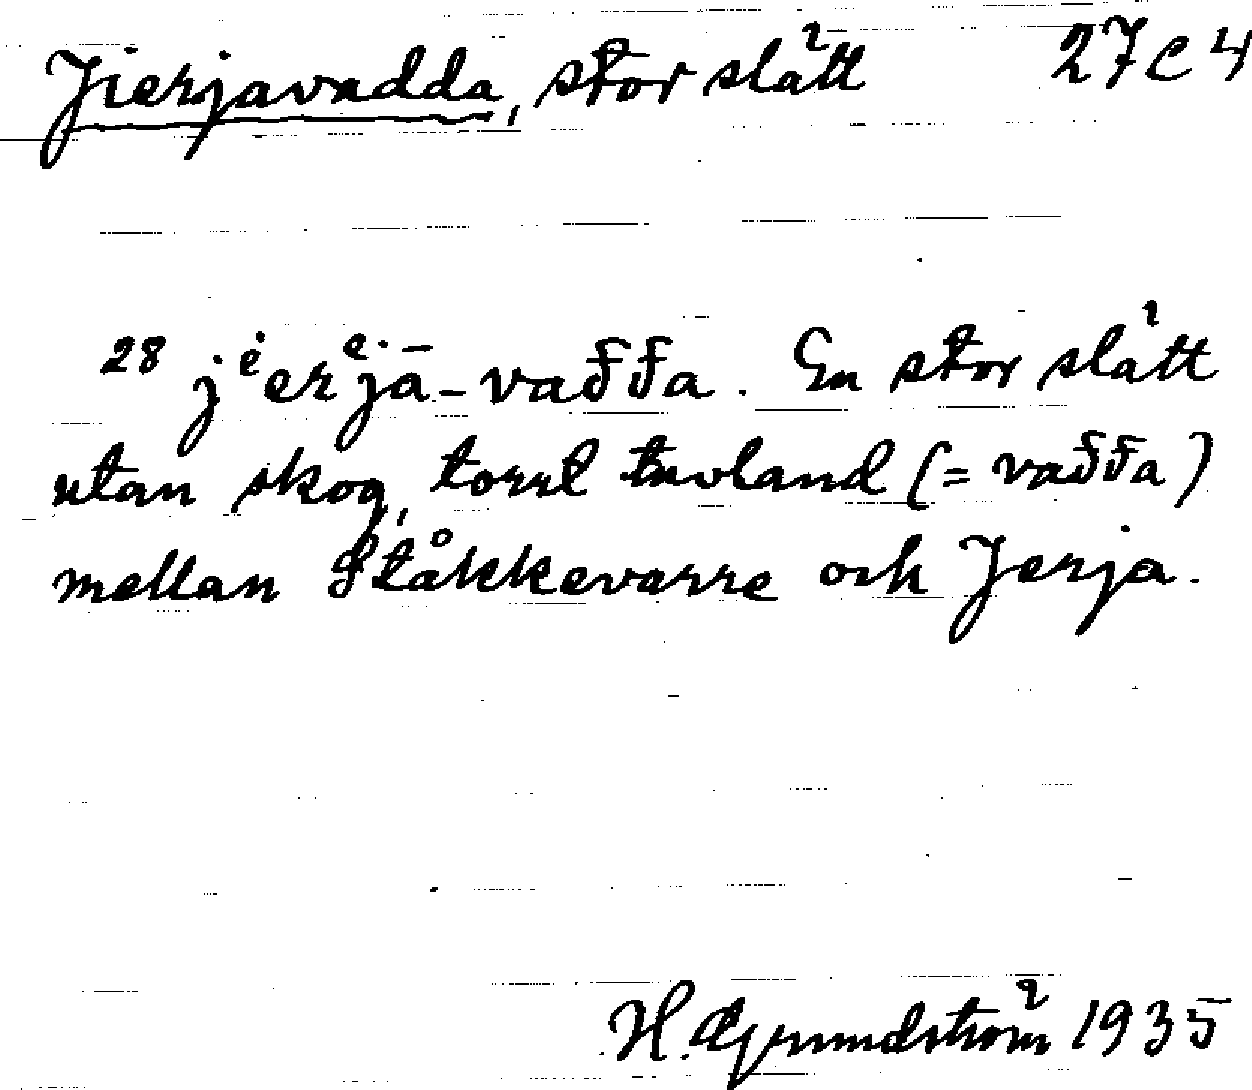 Jierjavadda, stor slätt 27C4
28 jėerejā-vađđa. En stor slätt
utan skog, torrt tuvland (= vađđa)
mellan Ståkkevarre och Jerja.
H. Grundström 1935